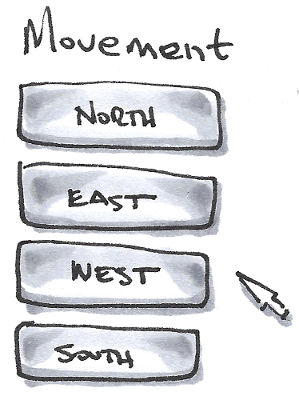 Movement
NORTH
EAST
WEST
SOUTH